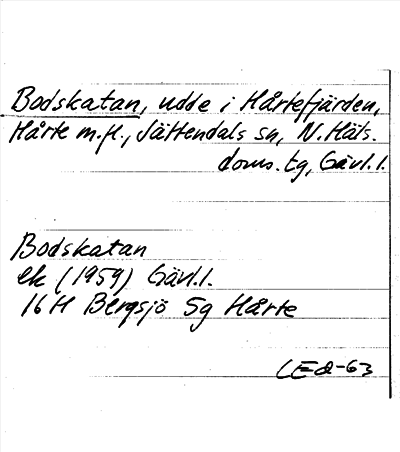 Bodskatan, udde i Hårtefjärden,
Hårte m.fl., Jättendals sn, N. Häls.
doms. tg, Gävl.l.
Bodskatan
ek (1959) Gävl.l.
16 H Bergsjö 5g Hårte
LEd-63